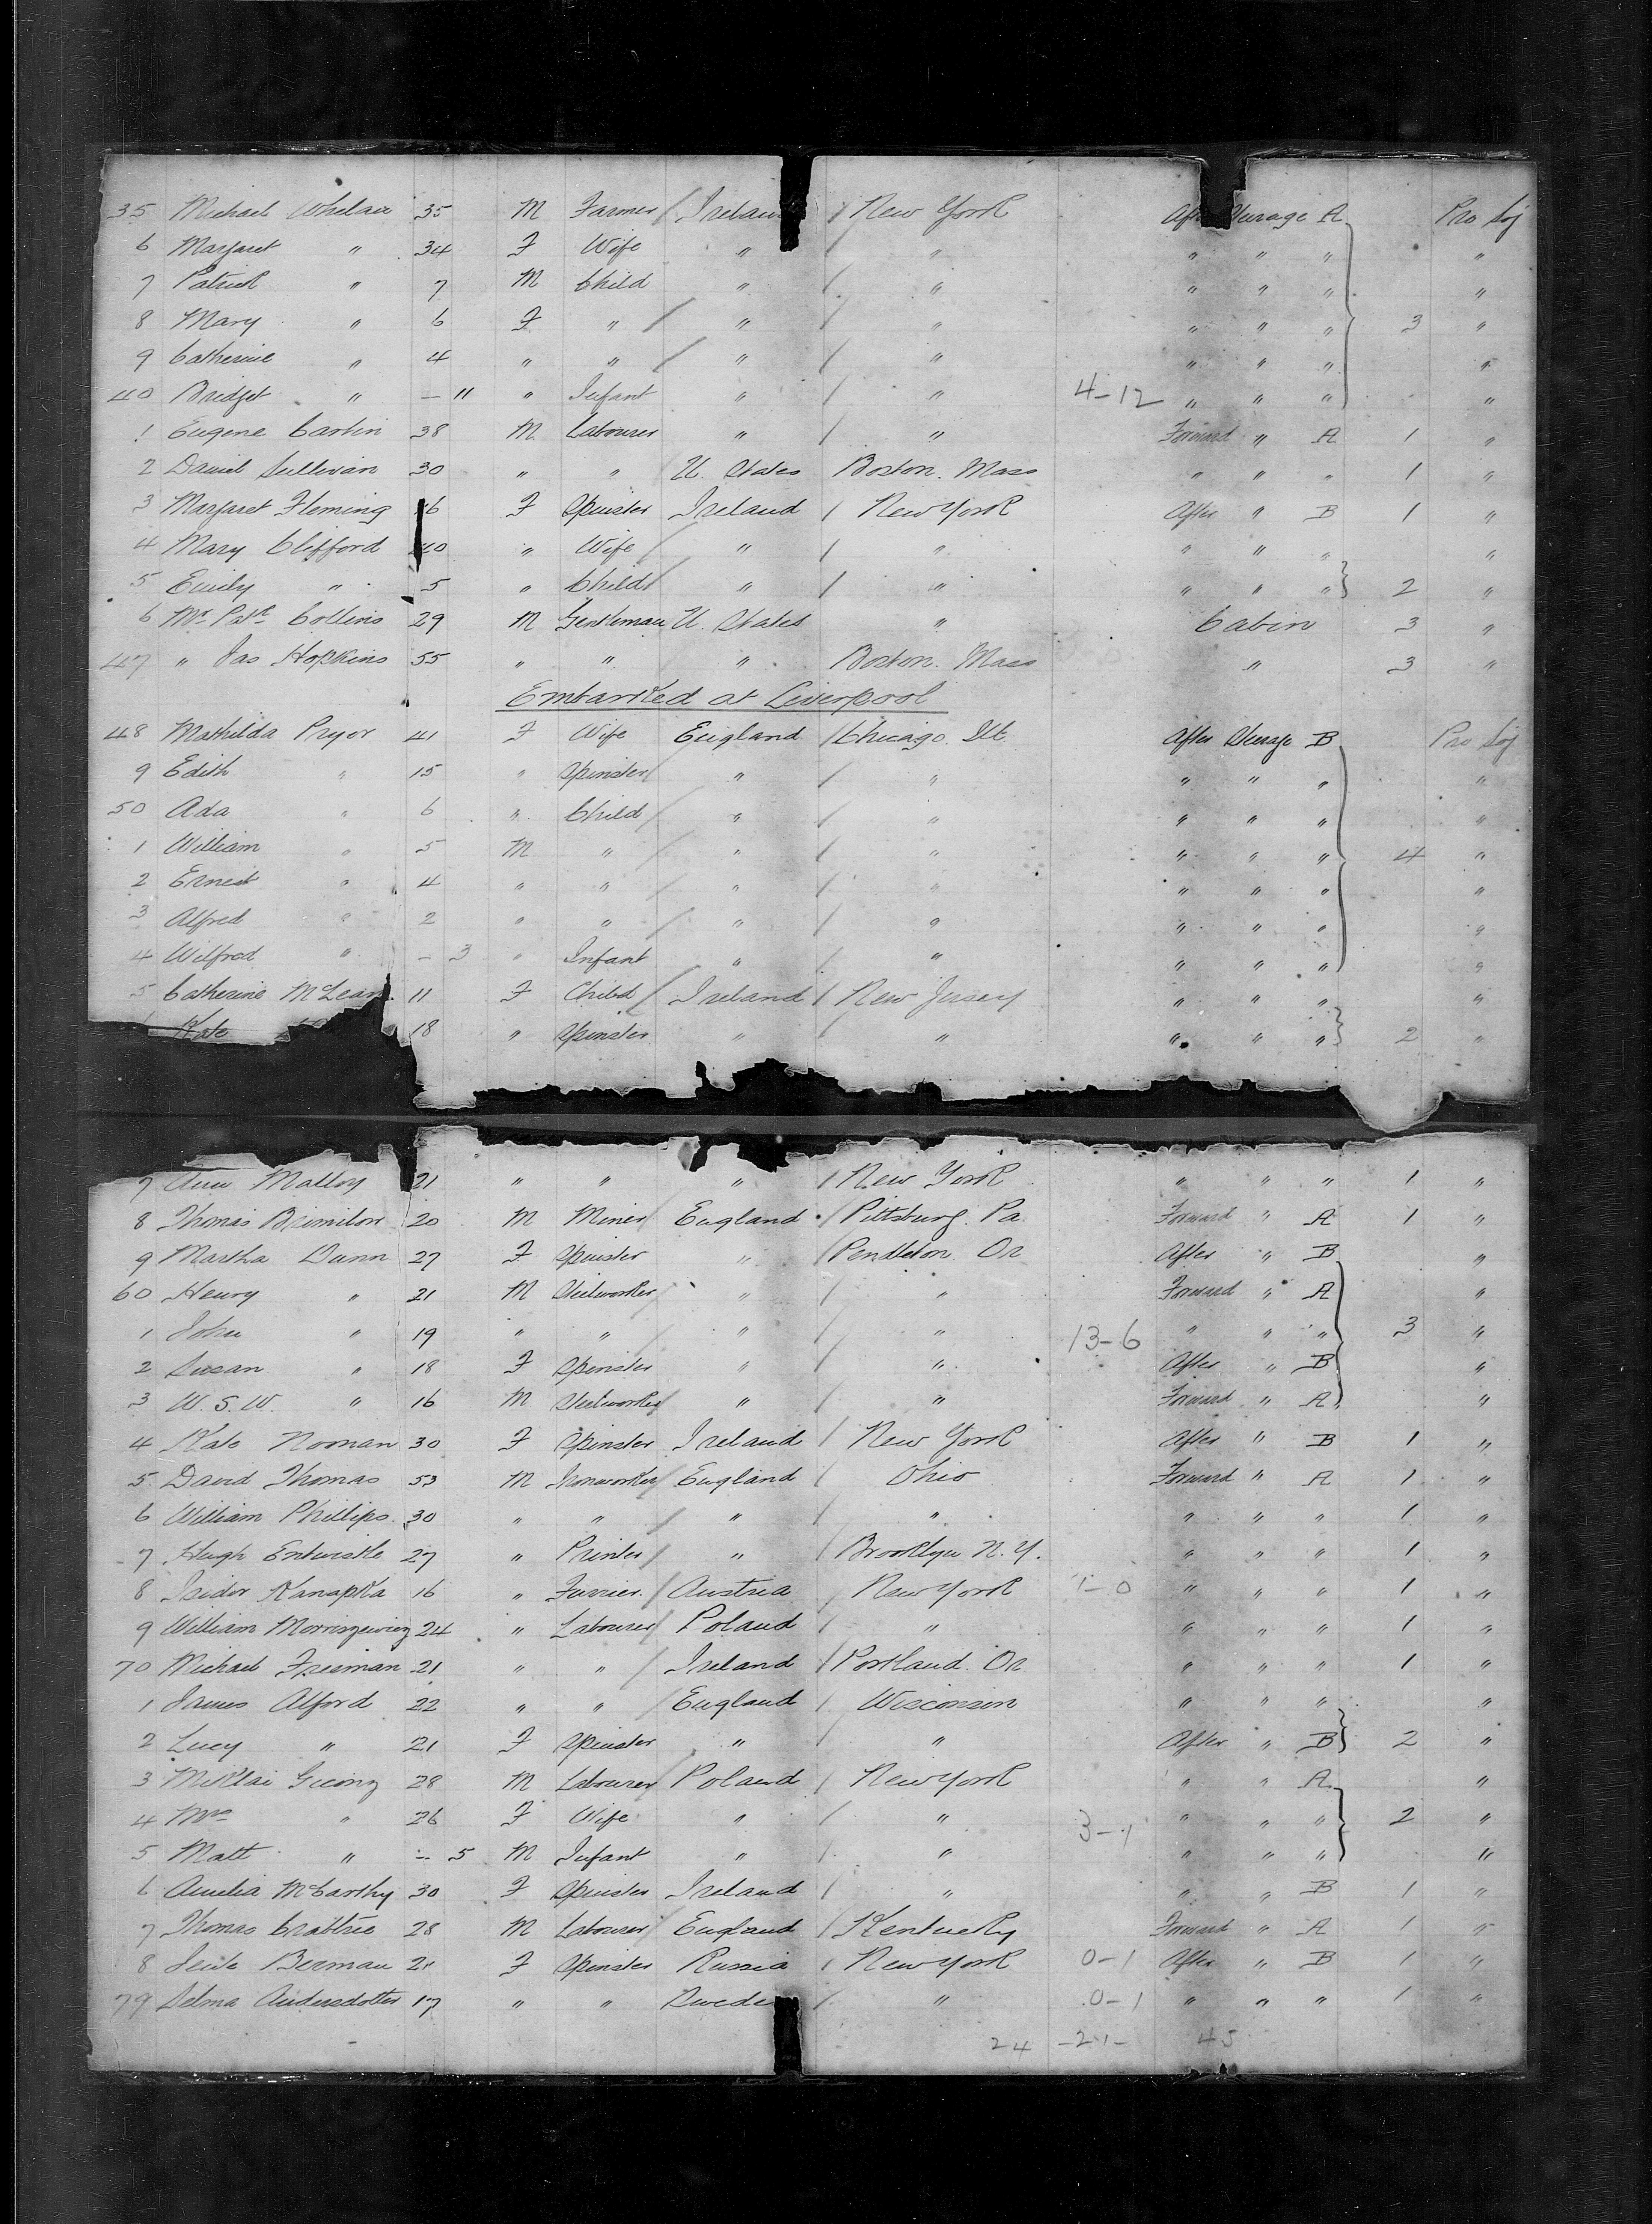 35 Michael Whelan 35 M Farmer / Ireland / New York After Steerage A Pro Soj
6 Margaret " 34 F Wife " " " " " "
7 Patrick " 7 M Child " / " " " " "
8 Mary " 6 F " / " / " " " " 3 "
9 Catherine " 4 " " / " / " " " " "
40 Bridget " — 11 " Infant " / " 4-12 " " " "
1 Eugene 38 M Labourer " / " Forward " A 1 "
2 Daniel Sullivan 30 " " U. States Boston. Mass " " " 1 "
3 Margaret Fleming 16 F Spinster Ireland / New York After " B 1 "
4 Mary Clifford 40 " Wife / " / " " " " "
5 Emily " 5 " Child / " / " " " " 2 "
6 Mr. Patk Collins 29 M Gentleman U. States " Cabin 3 "
47 " Jas Hopkins 55 " " " Boston. Mass " 3 "
Embarked at Liverpool
48 Mathilda Pryor 41 F Wife England / Chicago. Ill. After Steerage B Pro Soj
9 Edith " 15 " Spinster / " / " " " " "
50 Ada " 6 " Child / " / " " " " "
1 William " 5 M " / " / " " " " 4 "
2 Ernest " 4 " " / " / " " " " "
3 Alfred " 2 " " / " / " " " " "
4 Wilfred " – 3 " Infant " / " " " " "
5 Catherine McLean 11 F Child / Ireland / New Jersey " " " "
Kate 18 " Spinster " / " " " " 2 "
7 Ann Malloy 21 " " " / New York " " " 1 "
8 Thomas Brimilow 20 M Miner / England / Pittsburg. Pa. Forward " A 1 "
9 Martha Dunn 27 F Spinster " / Pendleton. Or After " B "
60 Henry " 21 M Steelworker / " / " Forward " A "
1 John " 19 " " / " / " 13-6 " " " 3 "
2 Susan " 18 F Spinster " / " After " B "
3 W. S. W. " 16 M Steelworker / " / " Forward " A "
4 Kate Noonan 30 F Spinster Ireland / New York After " B 1 "
5 David Thomas 53 M Ironworker / England / Ohio Forward " A 1 "
6 William Phillips 30 " " / " / " " " " 1 "
7 Hugh Entwistle 27 " Printer / " / Brooklyn N.Y. " " " 1 "
8 Isidor Kanapka 16 " Furrier / Austria / New York 1-0 " " " 1 "
9 William 24 " Labourer / Poland / " " " " 1 "
70 Michael Freeman 21 " " / Ireland / Portland. Or " " " 1 "
1 James Alford 22 " " / England / Wisconsin " " " "
2 Lucy " 21 F Spinster " / " After " B 2 "
3 Miklai 28 M Labourer / Poland / New York " " A "
4 Mrs " 26 F Wife " / " 3-1 " " " 2 "
5 Matt " – 5 M Infant " / " " " " "
6 Amelia McCarthy 30 F Spinster Ireland / " " " B 1 "
7 Thomas Crabtree 28 M Labourer / England / Kentucky Forward " A 1 "
8 Berman 21 F Spinster Russia / New York 0-1 After " B 1 "
79 Selma Andersdotter 17 " " Swede / " 0-1 " " " 1 "
24 -21- 45